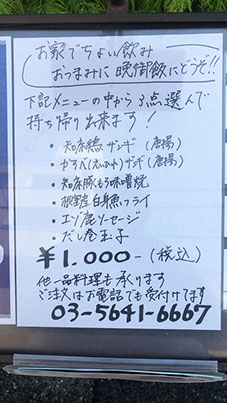 お家でちょい飲み
おつまみに晩御飯にどうぞ!!
下記メニューの中から3点選んで
持ち帰り出来ます!
・知床鶏ザンギ(唐揚)
・かすべ(えいひれ)ザンギ(唐揚)
・知床豚もろ味噌焼
・根室産白身魚フライ
・エゾ鹿ソーセージ
・だし巻玉子
¥1.000-(税込)
他一品料理も承ります
ご注文はお電話でも受付けてます
03-5641-6667